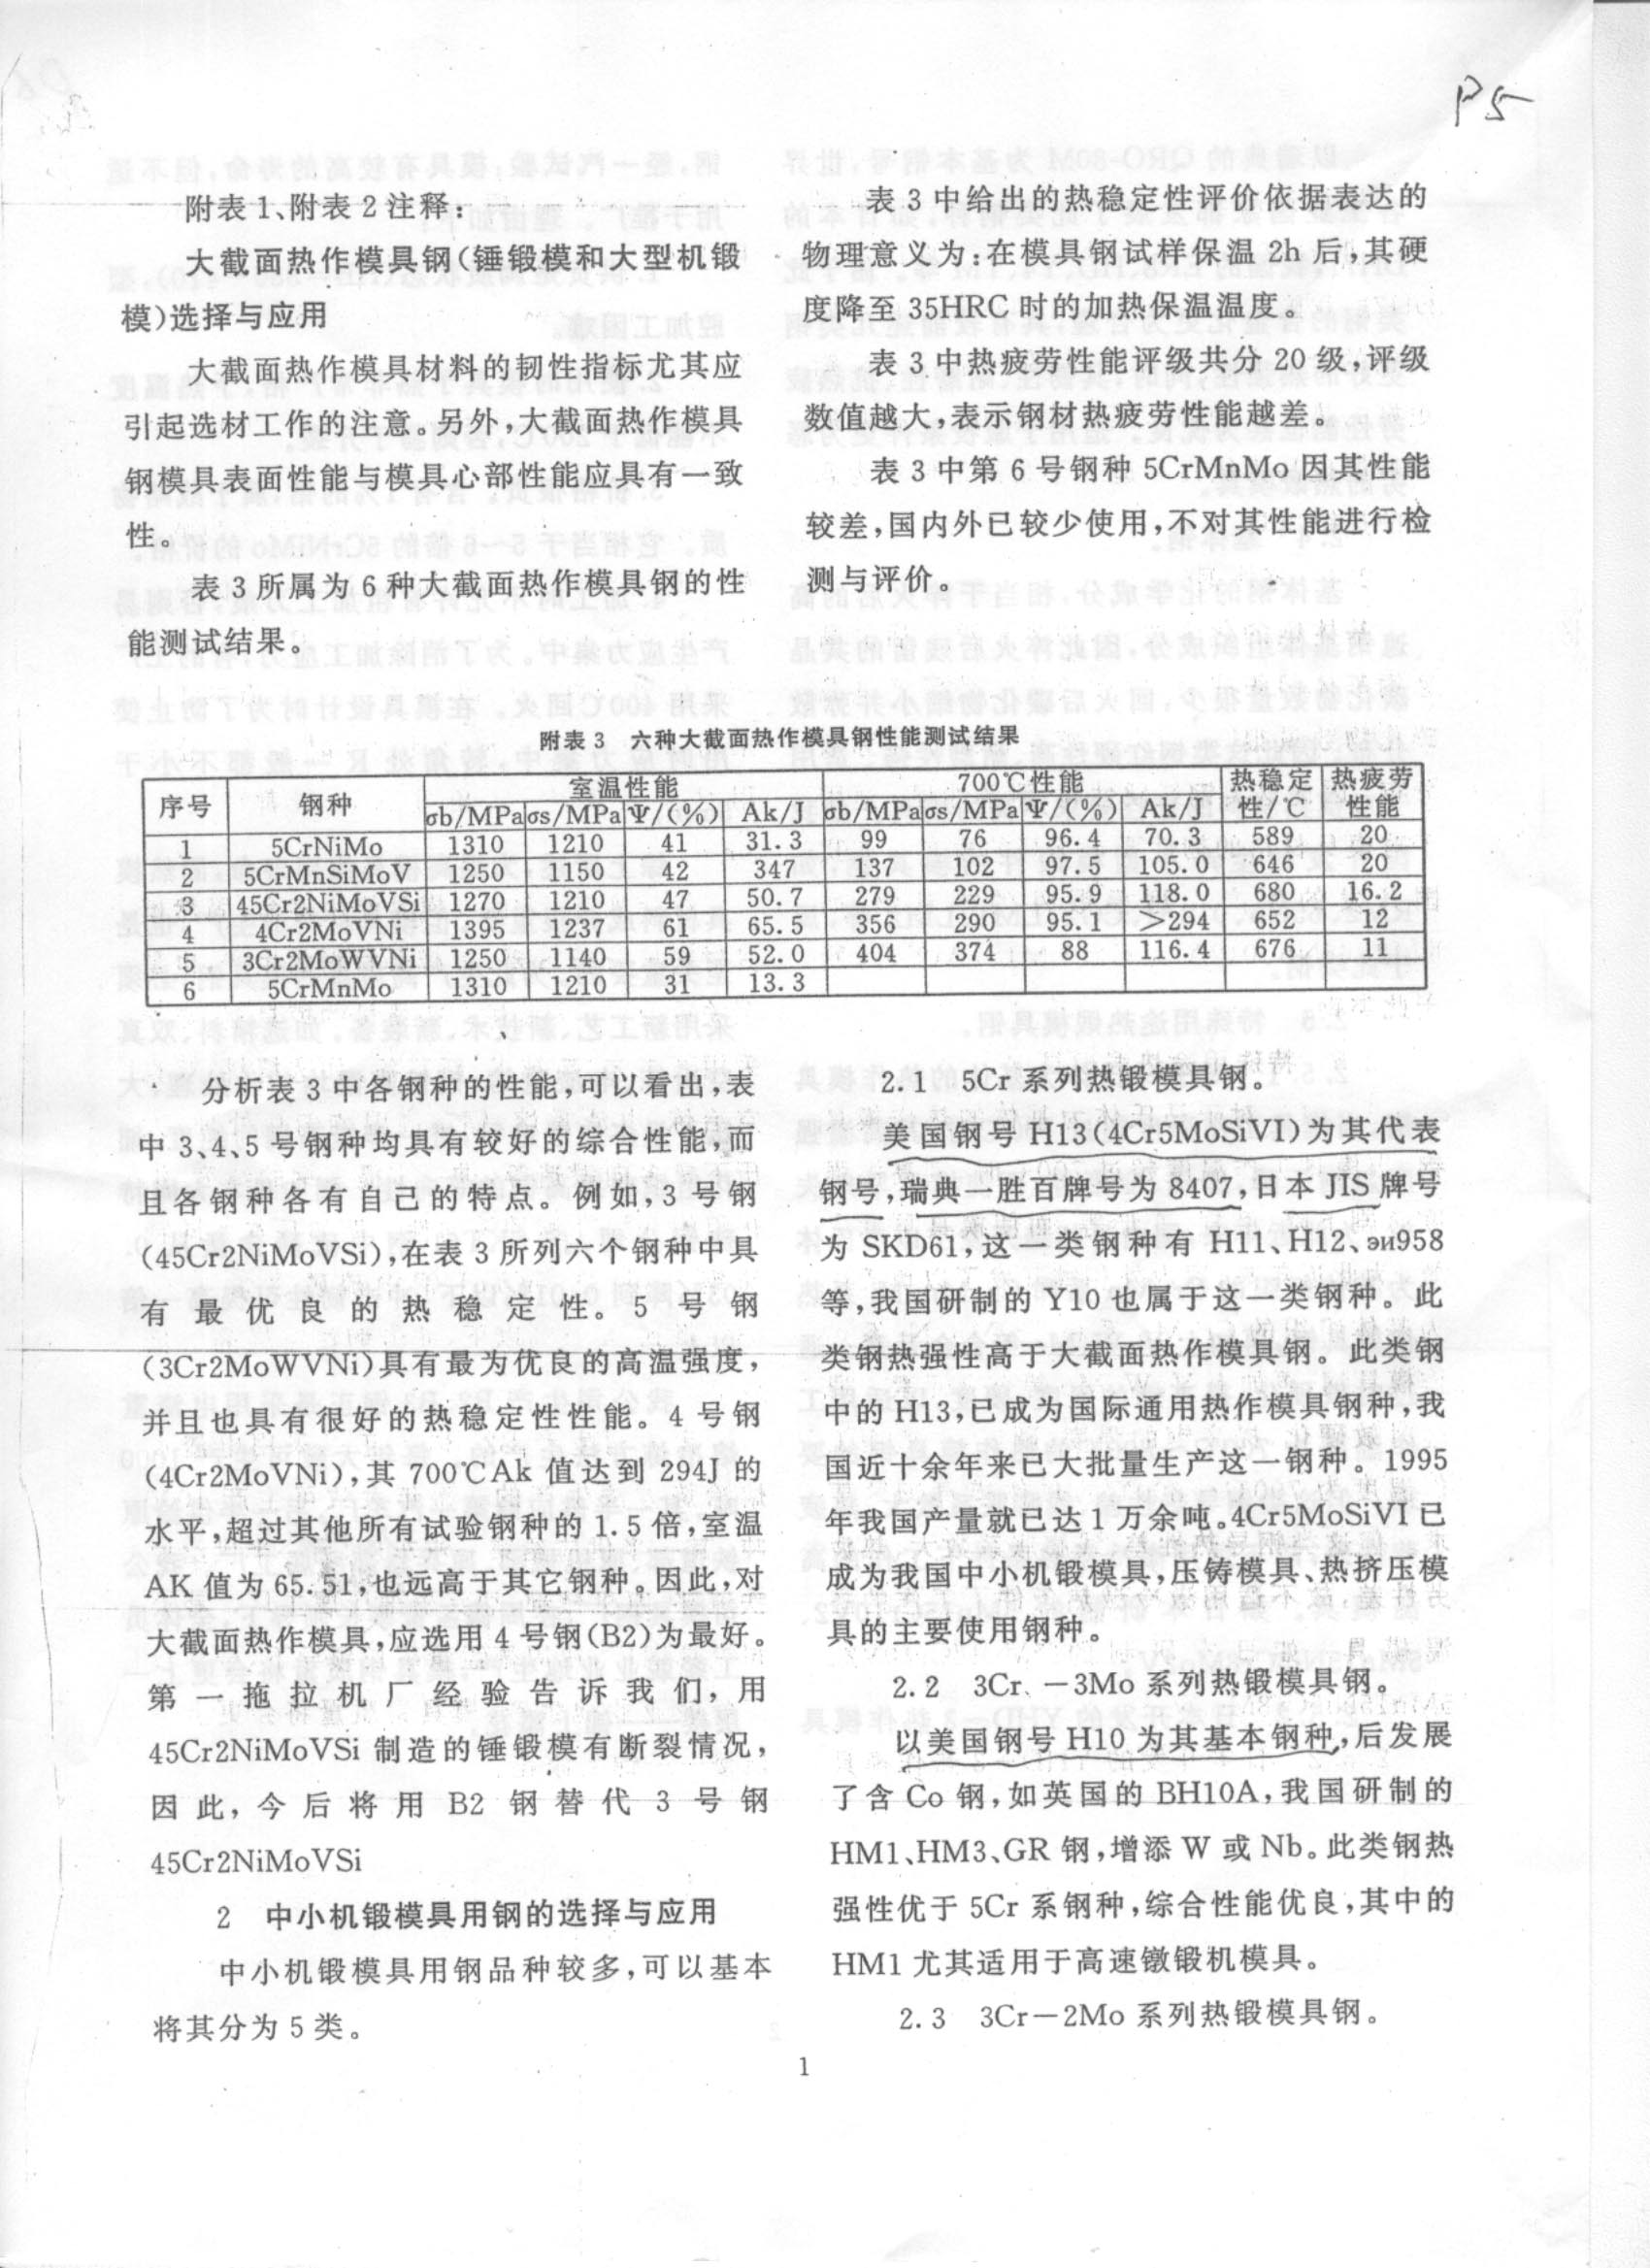 P5
附表 1、附表 2 注释：
大截面热作模具钢(锤锻模和大型机锻
模)选择与应用
大截面热作模具材料的韧性指标尤其应
引起选材工作的注意。另外，大截面热作模具
钢模具表面性能与模具心部性能应具有一致
性。
表 3 所属为 6 种大截面热作模具钢的性
能测试结果。
表 3 中给出的热稳定性评价依据表达的
物理意义为：在模具钢试样保温 2h 后，其硬
度降至 35HRC 时的加热保温温度。
表 3 中热疲劳性能评级共分 20 级，评级
数值越大，表示钢材热疲劳性能越差。
表 3 中第 6 号钢种 5CrMnMo 因其性能
较差，国内外已较少使用，不对其性能进行检
测与评价。
附表 3 六种大截面热作模具钢性能测试结果
序号 钢种 室温性能 700℃性能 热稳定性/℃ 热疲劳性能
σb/MPa σs/MPa Ψ/(%) Ak/J σb/MPa σs/MPa Ψ/(%) Ak/J
1 5CrNiMo 1310 1210 41 31.3 99 76 96.4 70.3 589 20
2 5CrMnSiMoV 1250 1150 42 347 137 102 97.5 105.0 646 20
3 45Cr2NiMoVSi 1270 1210 47 50.7 279 229 95.9 118.0 680 16.2
4 4Cr2MoVNi 1395 1237 61 65.5 356 290 95.1 >294 652 12
5 3Cr2MoWVNi 1250 1140 59 52.0 404 374 88 116.4 676 11
6 5CrMnMo 1310 1210 31 13.3
分析表 3 中各钢种的性能，可以看出，表
中 3、4、5 号钢种均具有较好的综合性能，而
且各钢种各有自己的特点。例如，3 号钢
(45Cr2NiMoVSi)，在表 3 所列六个钢种中具
有最优良的热稳定性。5 号钢
(3Cr2MoWVNi)具有最为优良的高温强度，
并且也具有很好的热稳定性性能。4 号钢
(4Cr2MoVNi)，其 700℃Ak 值达到 294J 的
水平，超过其他所有试验钢种的 1.5 倍，室温
AK 值为 65.51，也远高于其它钢种。因此，对
大截面热作模具，应选用 4 号钢(B2)为最好。
第一拖拉机厂经验告诉我们，用
45Cr2NiMoVSi 制造的锤锻模有断裂情况，
因此，今后将用 B2 钢替代 3 号钢
45Cr2NiMoVSi
2 中小机锻模具用钢的选择与应用
中小机锻模具用钢品种较多，可以基本
将其分为 5 类。
2.1 5Cr 系列热锻模具钢。
美国钢号 H13(4Cr5MoSiVI)为其代表
钢号，瑞典一胜百牌号为 8407，日本 JIS 牌号
为 SKD61，这一类钢种有 H11、H12、эи958
等，我国研制的 Y10 也属于这一类钢种。此
类钢热强性高于大截面热作模具钢。此类钢
中的 H13，已成为国际通用热作模具钢种，我
国近十余年来已大批量生产这一钢种。1995
年我国产量就已达 1 万余吨。4Cr5MoSiVI 已
成为我国中小机锻模具，压铸模具、热挤压模
具的主要使用钢种。
2.2 3Cr－3Mo 系列热锻模具钢。
以美国钢号 H10 为其基本钢种，后发展
了含 Co 钢，如英国的 BH10A，我国研制的
HM1、HM3、GR 钢，增添 W 或 Nb。此类钢热
强性优于 5Cr 系钢种，综合性能优良，其中的
HM1 尤其适用于高速镦锻机模具。
2.3 3Cr－2Mo 系列热锻模具钢。
1